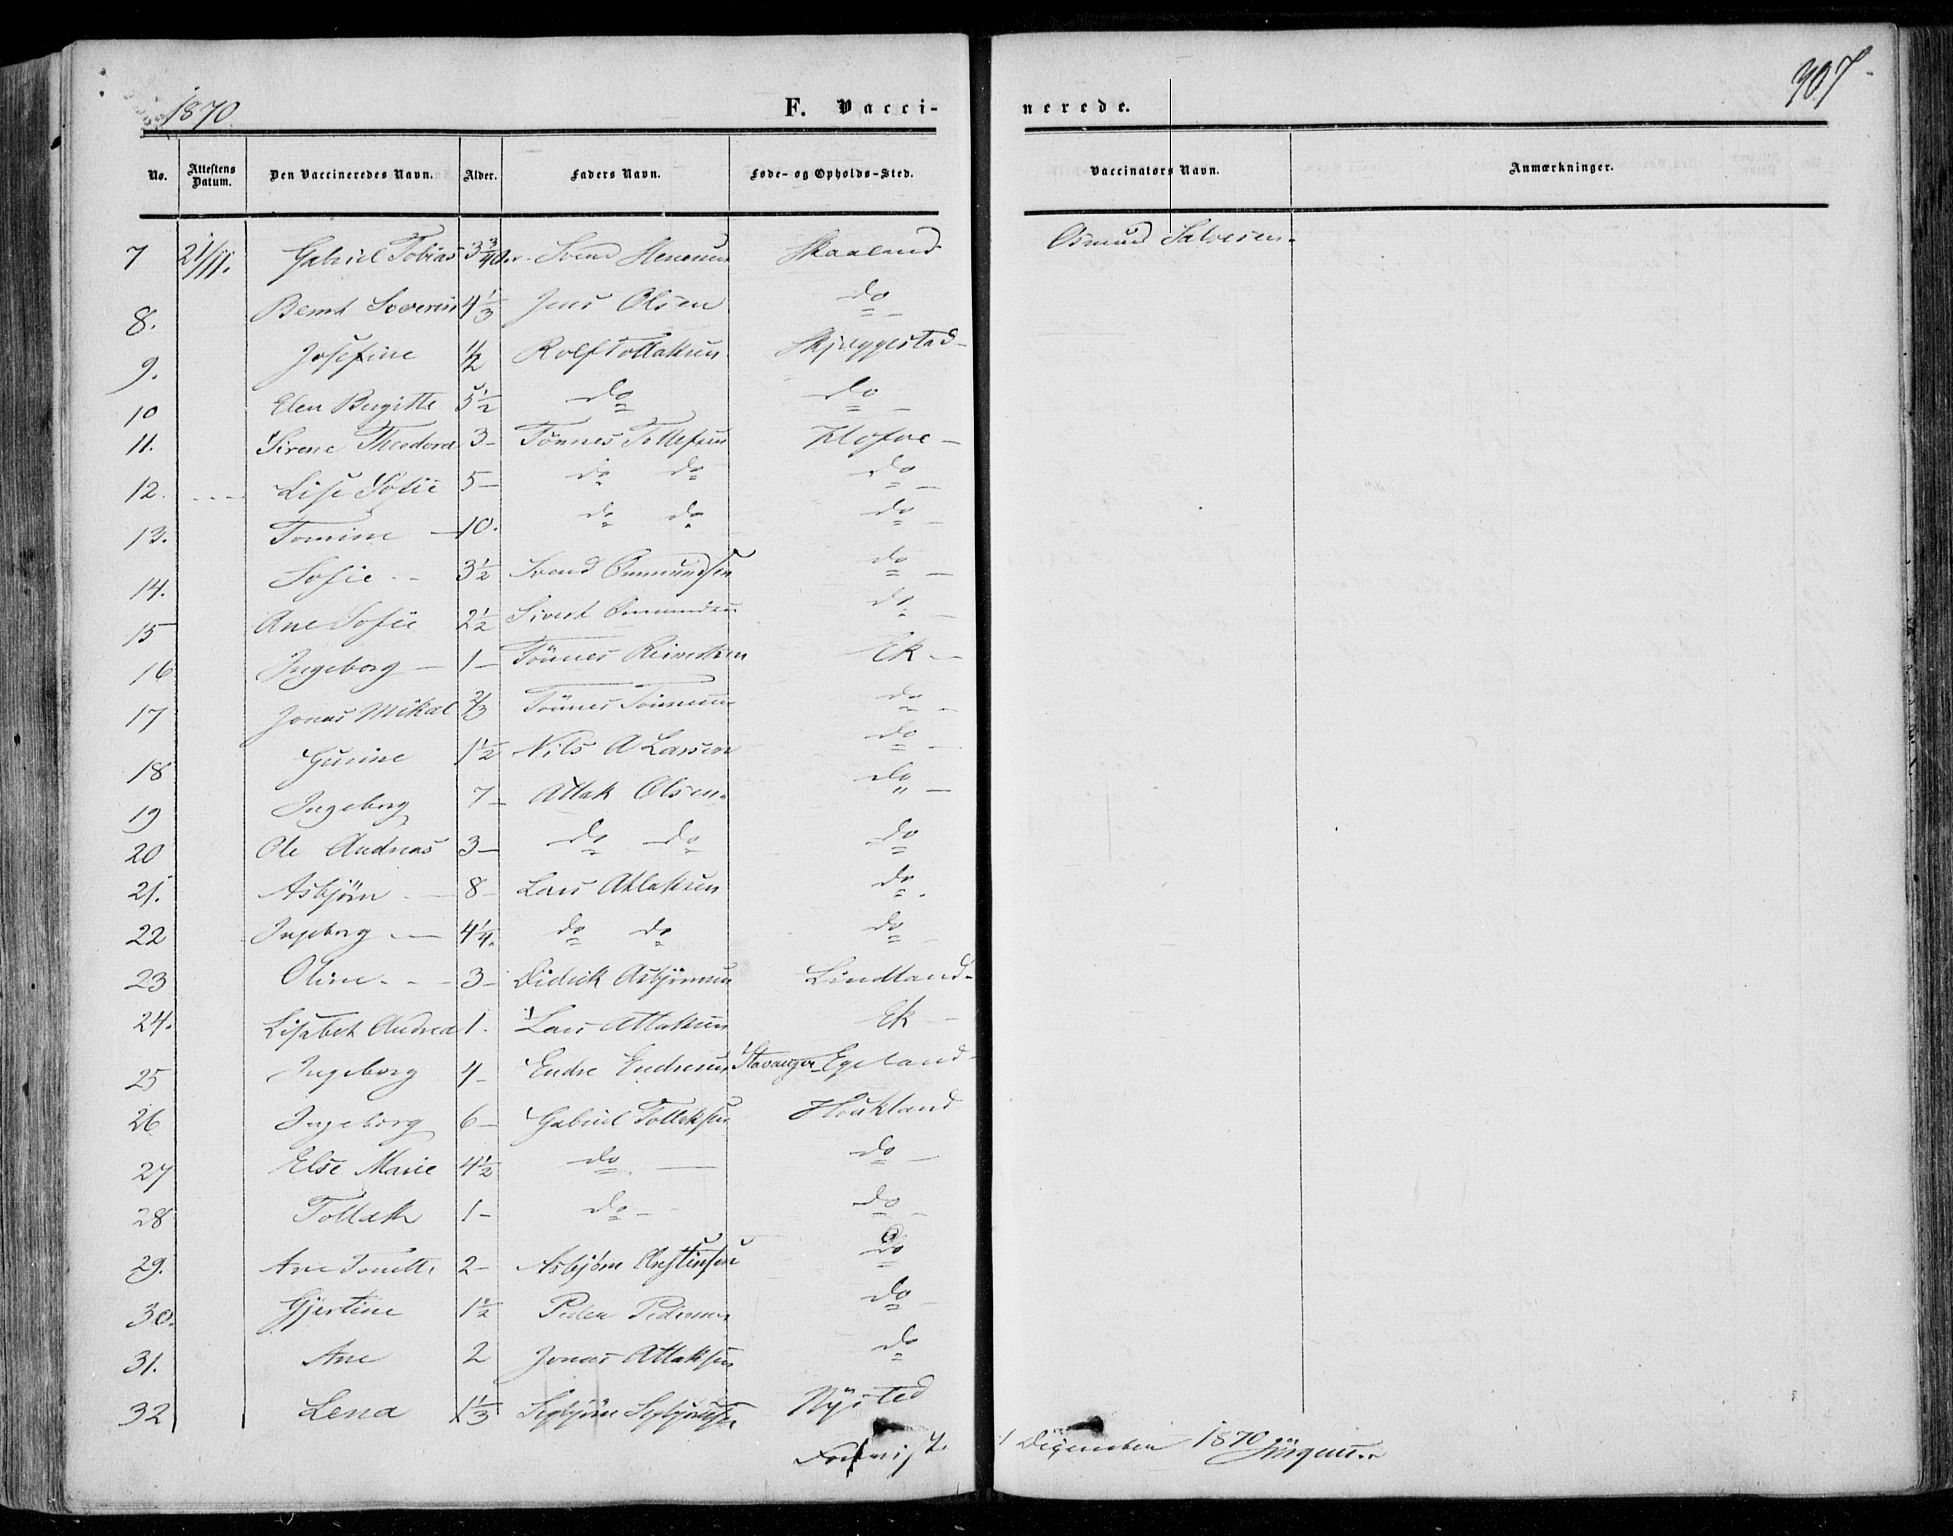 1870
F. Vacci-
nerede.
307
No. Attestens Datum. Den Vaccineredes Navn. Alder. Faders Navn. Føde- og Opholds-Sted. Vaccinators Navn. Anmærkninger.
7 21/11. Gabriel Tobias 3 3/4 Svend Skaaland Osmund Salvesen.
8. Bernt Severin 4 1/3 Jens Olsen do
9. Josefine 1/2 Rolf Tollaksen Skjeggestad
10 Elen Bergitte 5 1/2 do do
11. Sirene Theodora 3 Tønnes Tollefsen Klofve
12. Lise Sofie 5 do do do
13. Tomine 10. do do do
14. Sofie 3 1/2 Svend Ommundsen do
15 Ane Sofie 2 1/2 Sivert Ommundsen do
16 Ingeborg 1 Tønnes Reinertsen Ek
17 Jonas Mikal 2/3 Tønnes Tønnesen do
18 Gurine 1 1/2 Nils A Larsen do
19 Ingeborg 7 Atlak Olsen. do
20 Ole Andreas 3 do do do
21. Asbjørn 8 Lars Atlaksen do
22 Ingeborg 4 1/4. do do do
23 Oline 3 Didrik Asbjørnsen Lindland
24. Lisabet Andrea 1. Lars Atlaksen Ek
25 Ingeborg 4 Endre Endresen Stavanger Egeland
26 Ingeborg 6 Gabriel Tollaksen Houkland
27 Else Marie 4 1/2 do do
28 Tollak 1 do do
29. Ane Tonette 2 Asbjørn Christensen do
30. Gjertine 1 1/2 Peder Pedersen do
31. Ane 2 Jonas Atlaksen do
32 Lena 1 1/3 Segbjørn Segbjørnsen Nysted
December 1870 Jörgensen